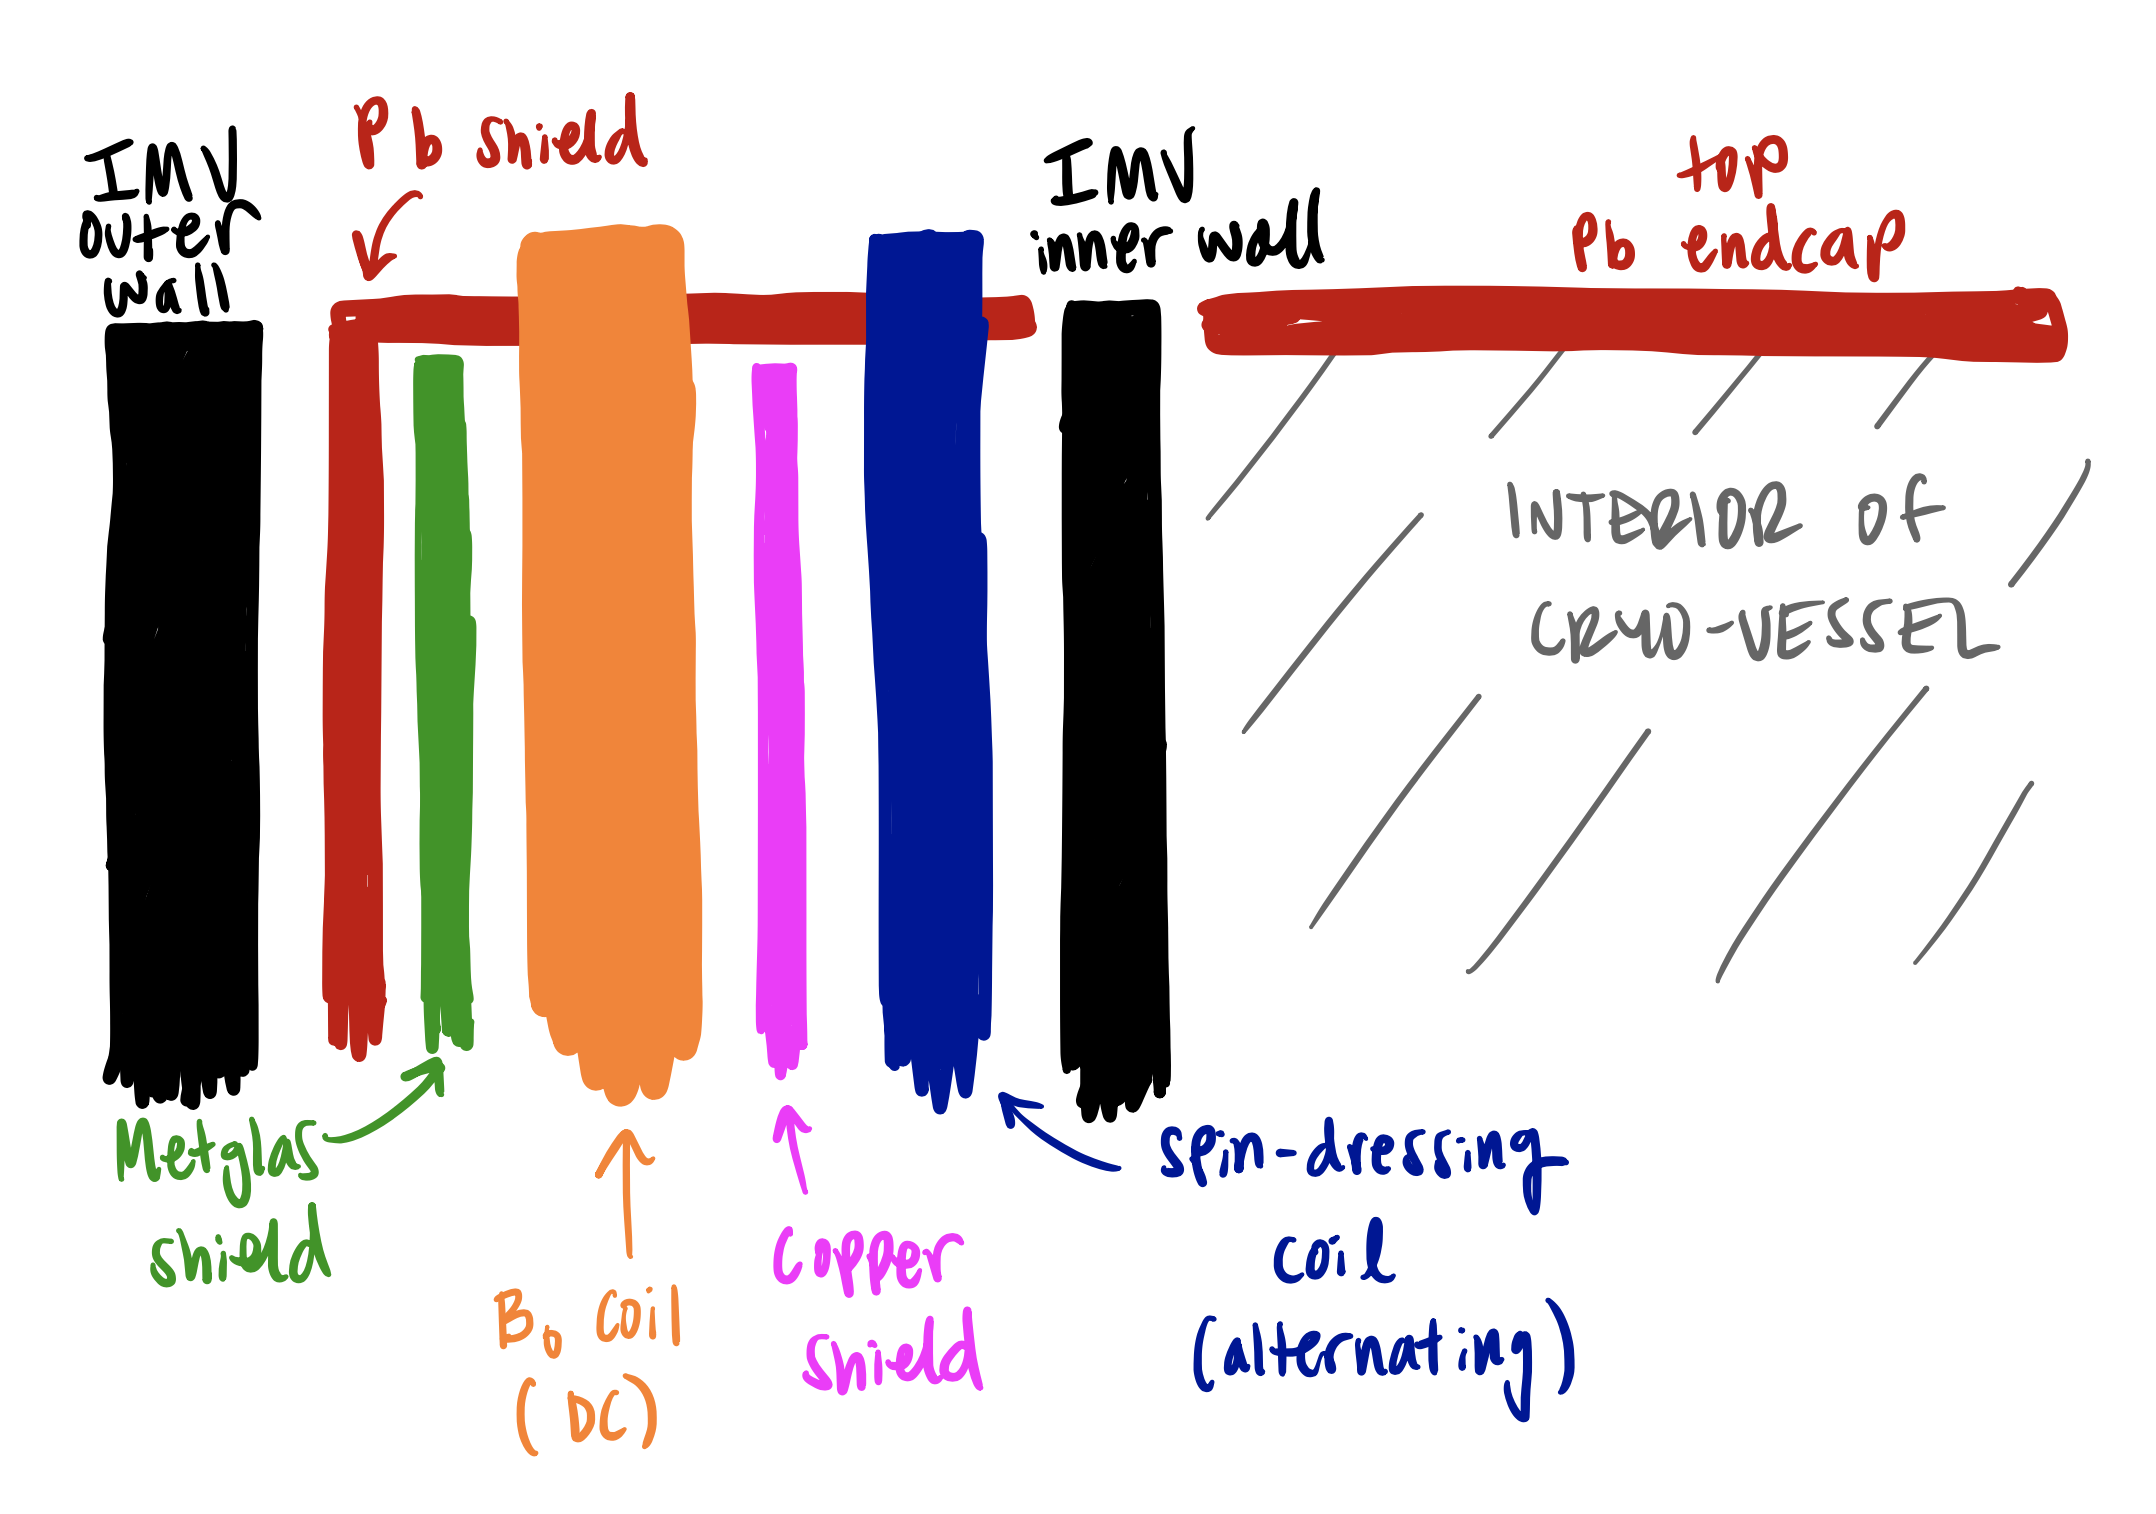 Pb shield
IMV
outer
wall
IMV
inner wall
top
Pb endcap
INTERIOR OF
CRYO-VESSEL
Metglas
shield
B₀ coil
(DC)
Copper
shield
spin-dressing
coil
(alternating)